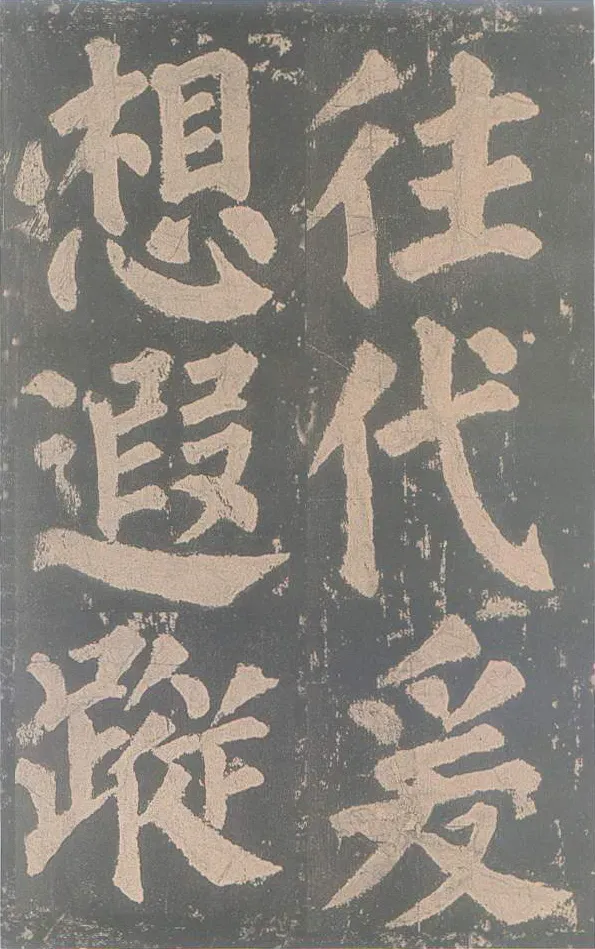 往代爰
想遐蹤